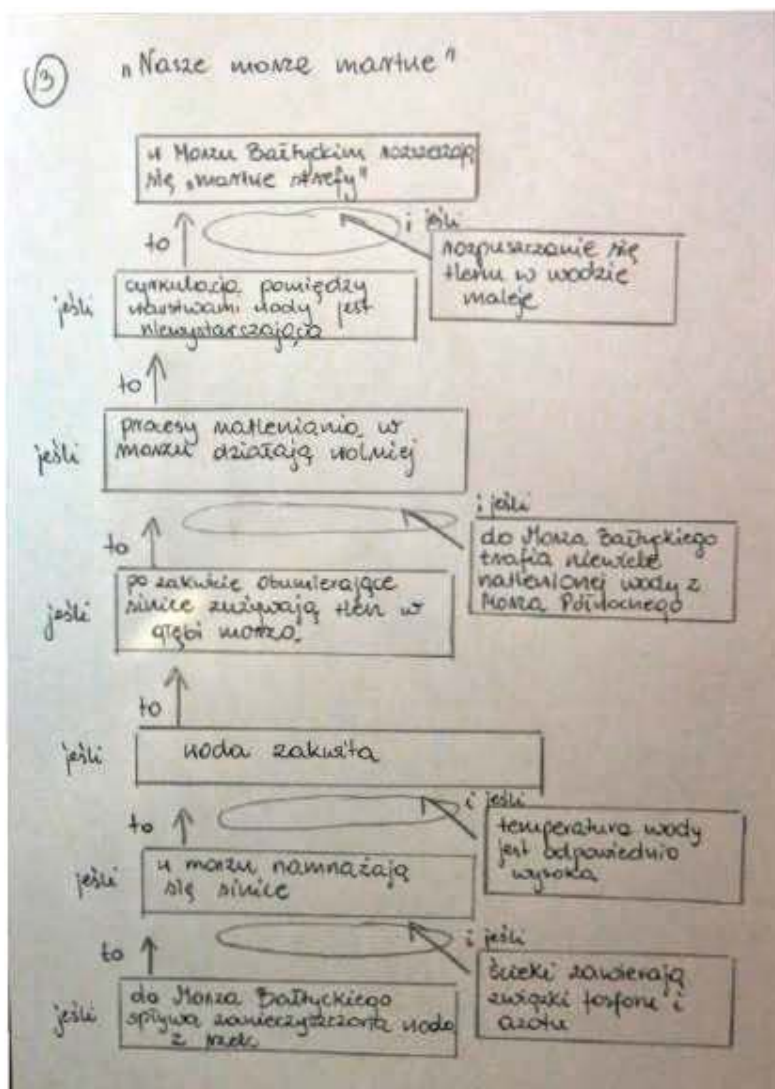 3
"Nasze morze martwe"
w Morzu Bałtyckim rozszerzają
się "martwe strefy"
to
i jeśli
rozpuszczanie się
tlenu w wodzie
maleje
jeśli
cyrkulacja pomiędzy
warstwami wody jest
niewystarczająca
to
jeśli
procesy natleniania w
morzu działają wolniej
to
i jeśli
do Morza Bałtyckiego
trafia niewiele
natlenionej wody z
Morza Północnego
jeśli
po zakwicie obumierające
sinice zużywają tlen w
głębi morza
to
jeśli
woda zakwita
to
i jeśli
temperatura wody
jest odpowiednio
wysoka
jeśli
w morzu namnażają
się sinice
to
i jeśli
ścieki zawierają
związki fosforu i
azotu
jeśli
do Morza Bałtyckiego
spływa zanieczyszczona woda
z rzek